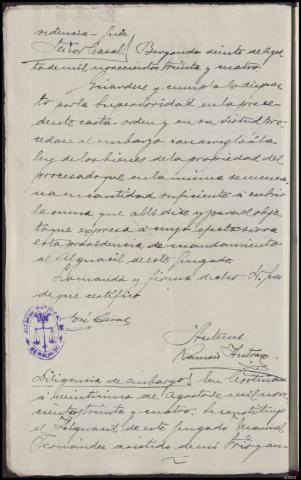 videncia - Juez
Señor Casal / Bergondo veinte de Agos
to de mil novecientos treinta y cuatro.
Guárdese y cumpla lo dispues
to por la Superioridad en la prece
dente carta-orden y en su virtud pro
cédase al embargo con arreglo á la
ley de los bienes de la propiedad del
procesado que en la misma se mencio
na en cantidad suficiente a cubrir
la suma que allí dice y para el obje
to que expresa a cuyo efecto sirva
esta providencia de mandamiento
al Alguacil de este Juzgado.
Lo manda y firma dicho Sr. Juez
de que certifico
José Casal
Anteme
Ramón
BERGONDO
Diligencia de embargo / En
a veintiuno de Agosto de mil nove
cientos treinta y cuatro. Se constituye
el Alguacil de este Juzgado Manuel
Fernández asistido de mi